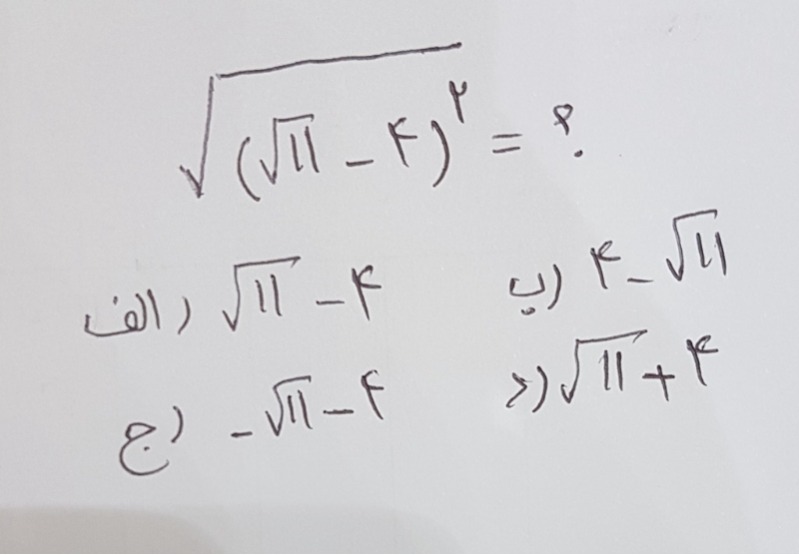 √(√۱۱ - ۴)^۲ = ؟
الف) √۱۱ - ۴ ب) ۴ - √۱۱
ج) -√۱۱ - ۴ د) √۱۱ + ۴